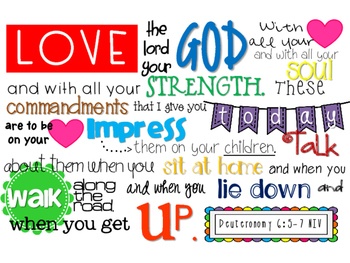 LOVE the lord your GOD With all your
and with all your soul
and with all your STRENGTH. These
commandments that I give you today
are to be on your impress
them on your children. Talk
about them when you sit at home and when you
walk along the road, and when you lie down and
when you get UP.
Deuteronomy 6:5-7 NIV